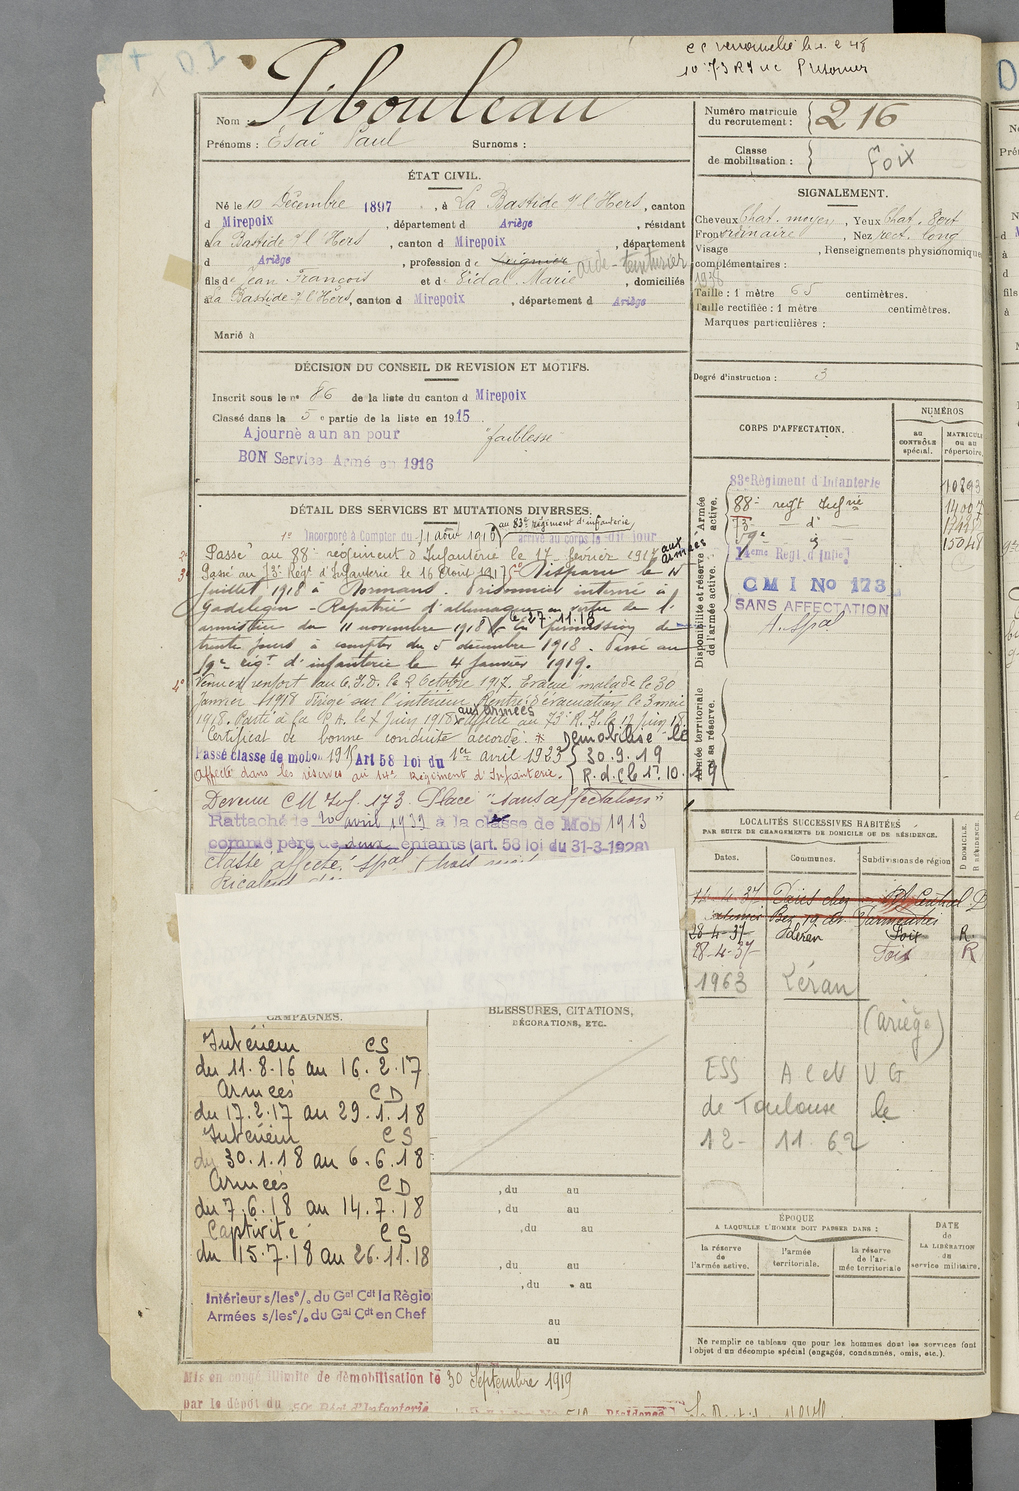 10783 R4 uc Prisonnier
Nom : Tibouleau
Prénoms : Esaï Paul Surnoms :
Numéro matricule du recrutement : 216
Classe de mobilisation : Foix
ÉTAT CIVIL.
Né le 10 Décembre 1897, à La Bastide s/ l'Hers, canton
d Mirepoix, département d Ariège, résidant
à La Bastide s/ l'Hers, canton d Mirepoix, département
d Ariège, profession de peignier aide-teinturier
fils de Jean François et de Vidal Marie, domiciliés
à La Bastide s/ l'Hers, canton d Mirepoix, département d Ariège
Marié à
SIGNALEMENT.
Cheveux chat. moyen, Yeux chat. foncé
Front ordinaire, Nez rect. long
Visage , Renseignements physionomiques
complémentaires :
1938
Taille : 1 mètre 65 centimètres.
Taille rectifiée : 1 mètre centimètres.
Marques particulières :
Degré d'instruction : 3
DÉCISION DU CONSEIL DE REVISION ET MOTIFS.
Inscrit sous le n° 86 de la liste du canton d Mirepoix
Classé dans la 5e partie de la liste en 1915
Ajourné a un an pour "faiblesse"
BON Service Armé en 1916
DÉTAIL DES SERVICES ET MUTATIONS DIVERSES.
1° Incorporé à Compter du 11 août 1916 au 83e Régiment d'infanterie
arrivé au corps le dit jour
2° Passé au 88e régiment d'Infanterie le 17 février 1917 aux armées
3° Passé au 73e Régt d'Infanterie le 16 Août 1917 5° Disparu le 15
juillet 1918 à Dormans. Prisonnier interné à
Gardelegen - Rapatrié d'allemagne en vertu de l'
armistice du 11 novembre 1918 le 27.11.18 En permission de
trente jours à compter du 5 décembre 1918. Passé au
59e régt d'infanterie le 4 janvier 1919.
4° Venu en renfort au C.I.D. le 2 Octobre 1917. Evacué malade le 30
janvier 1918 dirigé sur l'intérieur. Rentré d'évacuation le 3 mai
1918. Parti à la C.A. le 7 juin 1918 aux armées affecté au 73e R.I. le 19 juin 18.
Certificat de bonne conduite accordé. Démobilisé le
30.9.19
Passé classe de mobon 1915 Art 58 loi du 1er avril 1923
R. d. C le 17.10.19
Affecté dans les réserves au 14e Régiment d'Infanterie.
Devenu CM Inf. 173. Placé "sans affectation"
Rattaché le 20 avril 1939 à la classe de Mob 1913
comme père de deux enfants (art. 58 loi du 31-3-1928)
classé affecté spal
CORPS D'AFFECTATION.
NUMÉROS
AU CONTRÔLE spécial.
MATRICULE ou au répertoire.
Armée active.
Disponibilité et réserve de l'armée active.
Armée territoriale et sa réserve.
83e Régiment d'Infanterie 10893
88e régt Infrie 14007
73e d°
59e d° 15048
14eme Regt d'Infie
CMI No 173
SANS AFFECTATION
A. Spal
LOCALITÉS SUCCESSIVES HABITÉES
PAR SUITE DE CHANGEMENTS DE DOMICILE OU DE RÉSIDENCE.
Dates. Communes. Subdivisions de région
D DOMICILE. R RÉSIDENCE
14-4-37 Paris chez Pl. Central D
28-4-37 Léran Foix R
28-4-37 Foix R
1963 Léran
(Ariège)
ESS ACCVG
de Toulouse le
12-11 62
CAMPAGNES.
Intérieur CS
du 11.8.16 au 16.2.17
Armées CD
du 17.2.17 au 29.1.18
Intérieur CS
du 30.1.18 au 6.6.18
Armées CD
du 7.6.18 au 14.7.18
Captivité CS
du 15.7.18 au 26.11.18
Intérieur s/lese/. du Gal Cdt la Régio
Armées s/lese/. du Gal Cdt en Chef
BLESSURES, CITATIONS,
DÉCORATIONS, ETC.
, du au
, du au
, du au
, du au
, du au
au
au
ÉPOQUE
A LAQUELLE L'HOMME DOIT PASSER DANS :
la réserve de l'armée active.
l'armée territoriale.
la réserve de l'armée territoriale
DATE de LA LIBÉRATION du service militaire.
Ne remplir ce tableau que pour les hommes dont les services font
l'objet d'un décompte spécial (engagés, condamnés, omis, etc.).
Mis en congé illimité de démobilisation le 30 Septembre 1919
par le dépôt du 59e Régt d'Infanterie